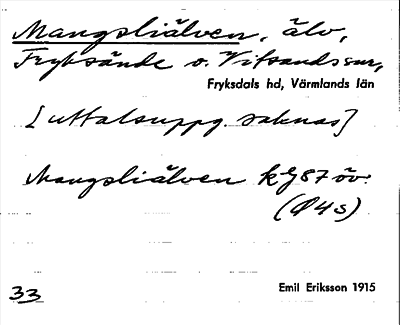 Mangsliälven, älv,
Fryksände o. Vitsands snr,
Fryksdals hd, Värmlands län
[uttalsuppg. saknas]
Mangsliälven kg 87 öv.
(Ø4s)
33
Emil Eriksson 1915